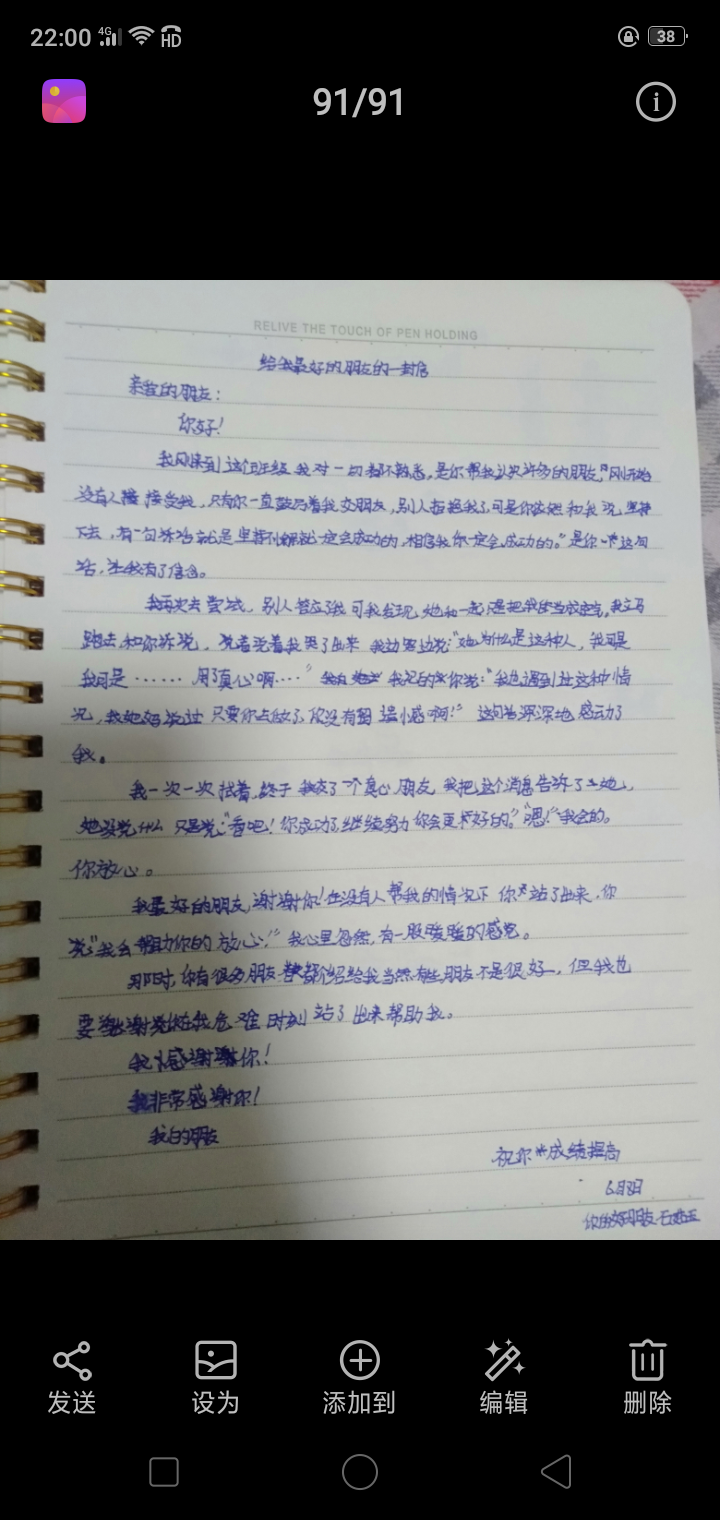 22:00 4G HD 38
91/91
RELIVE THE TOUCH OF PEN HOLDING
给我最好的朋友的一封信
亲爱的朋友：
你好！
我刚来到这个班级我对一切都不熟悉，是你帮我认识许多的朋友，"刚开始
没有人接受我，只有你一直鼓励着我交朋友，别人拒绝我了可是你依旧和我说，坚持
下去，有一句话就是坚持不懈就一定会成功的，相信我你一定会成功的。"是你这句
话，让我有了信念。
我再次去尝试，别人答应了我可我发现，她和一起只是把我，我立马
跑去和你诉说，说着说着我哭了出来 我边哭边说："她为什么是这种人，我可是
我可是……用了真心啊……" 我记的你说："我也遇到过这种情
况，我妈妈说过 只要你去做了，你没有遗憾啊！" 这句话深深地感动了
我。
我一次一次试着，终于我交了一个真心朋友 我把这个消息告诉了她，
她没说什么 只是说："看吧！你成功了，继续努力你会更好的。""嗯！"我会的。
你放心。
我最好的朋友，谢谢你！在没有人帮我的情况下 你站了出来，你
说"我会帮助你的 放心！"我心里忽然，有一股暖暖的感觉。
那时，你有很多朋友都介绍给我当然有些朋友不是很好，但我也
要谢谢她在我危难时刻 站了出来帮助我。
我感谢你！
我非常感谢你！
我的朋友
祝你成绩提高
6月8日
你的好朋友
发送 设为 添加到 编辑 删除